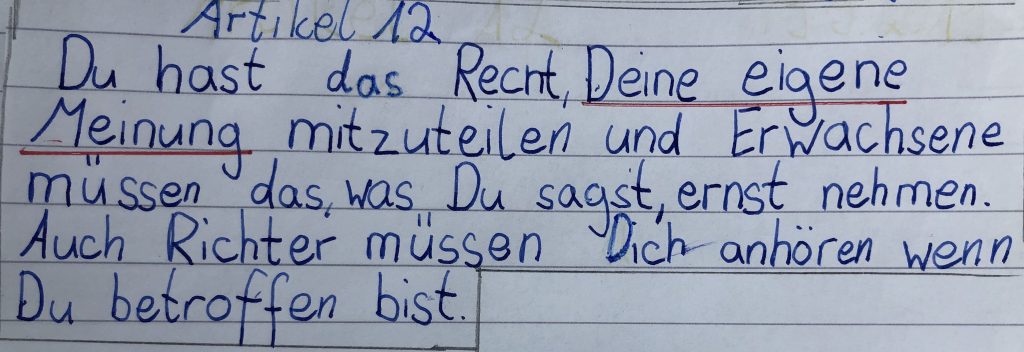 Artikel 12
Du hast das Recht, Deine eigene
Meinung mitzuteilen und Erwachsene
müssen das, was Du sagst, ernst nehmen.
Auch Richter müssen Dich anhören wenn
Du betroffen bist.